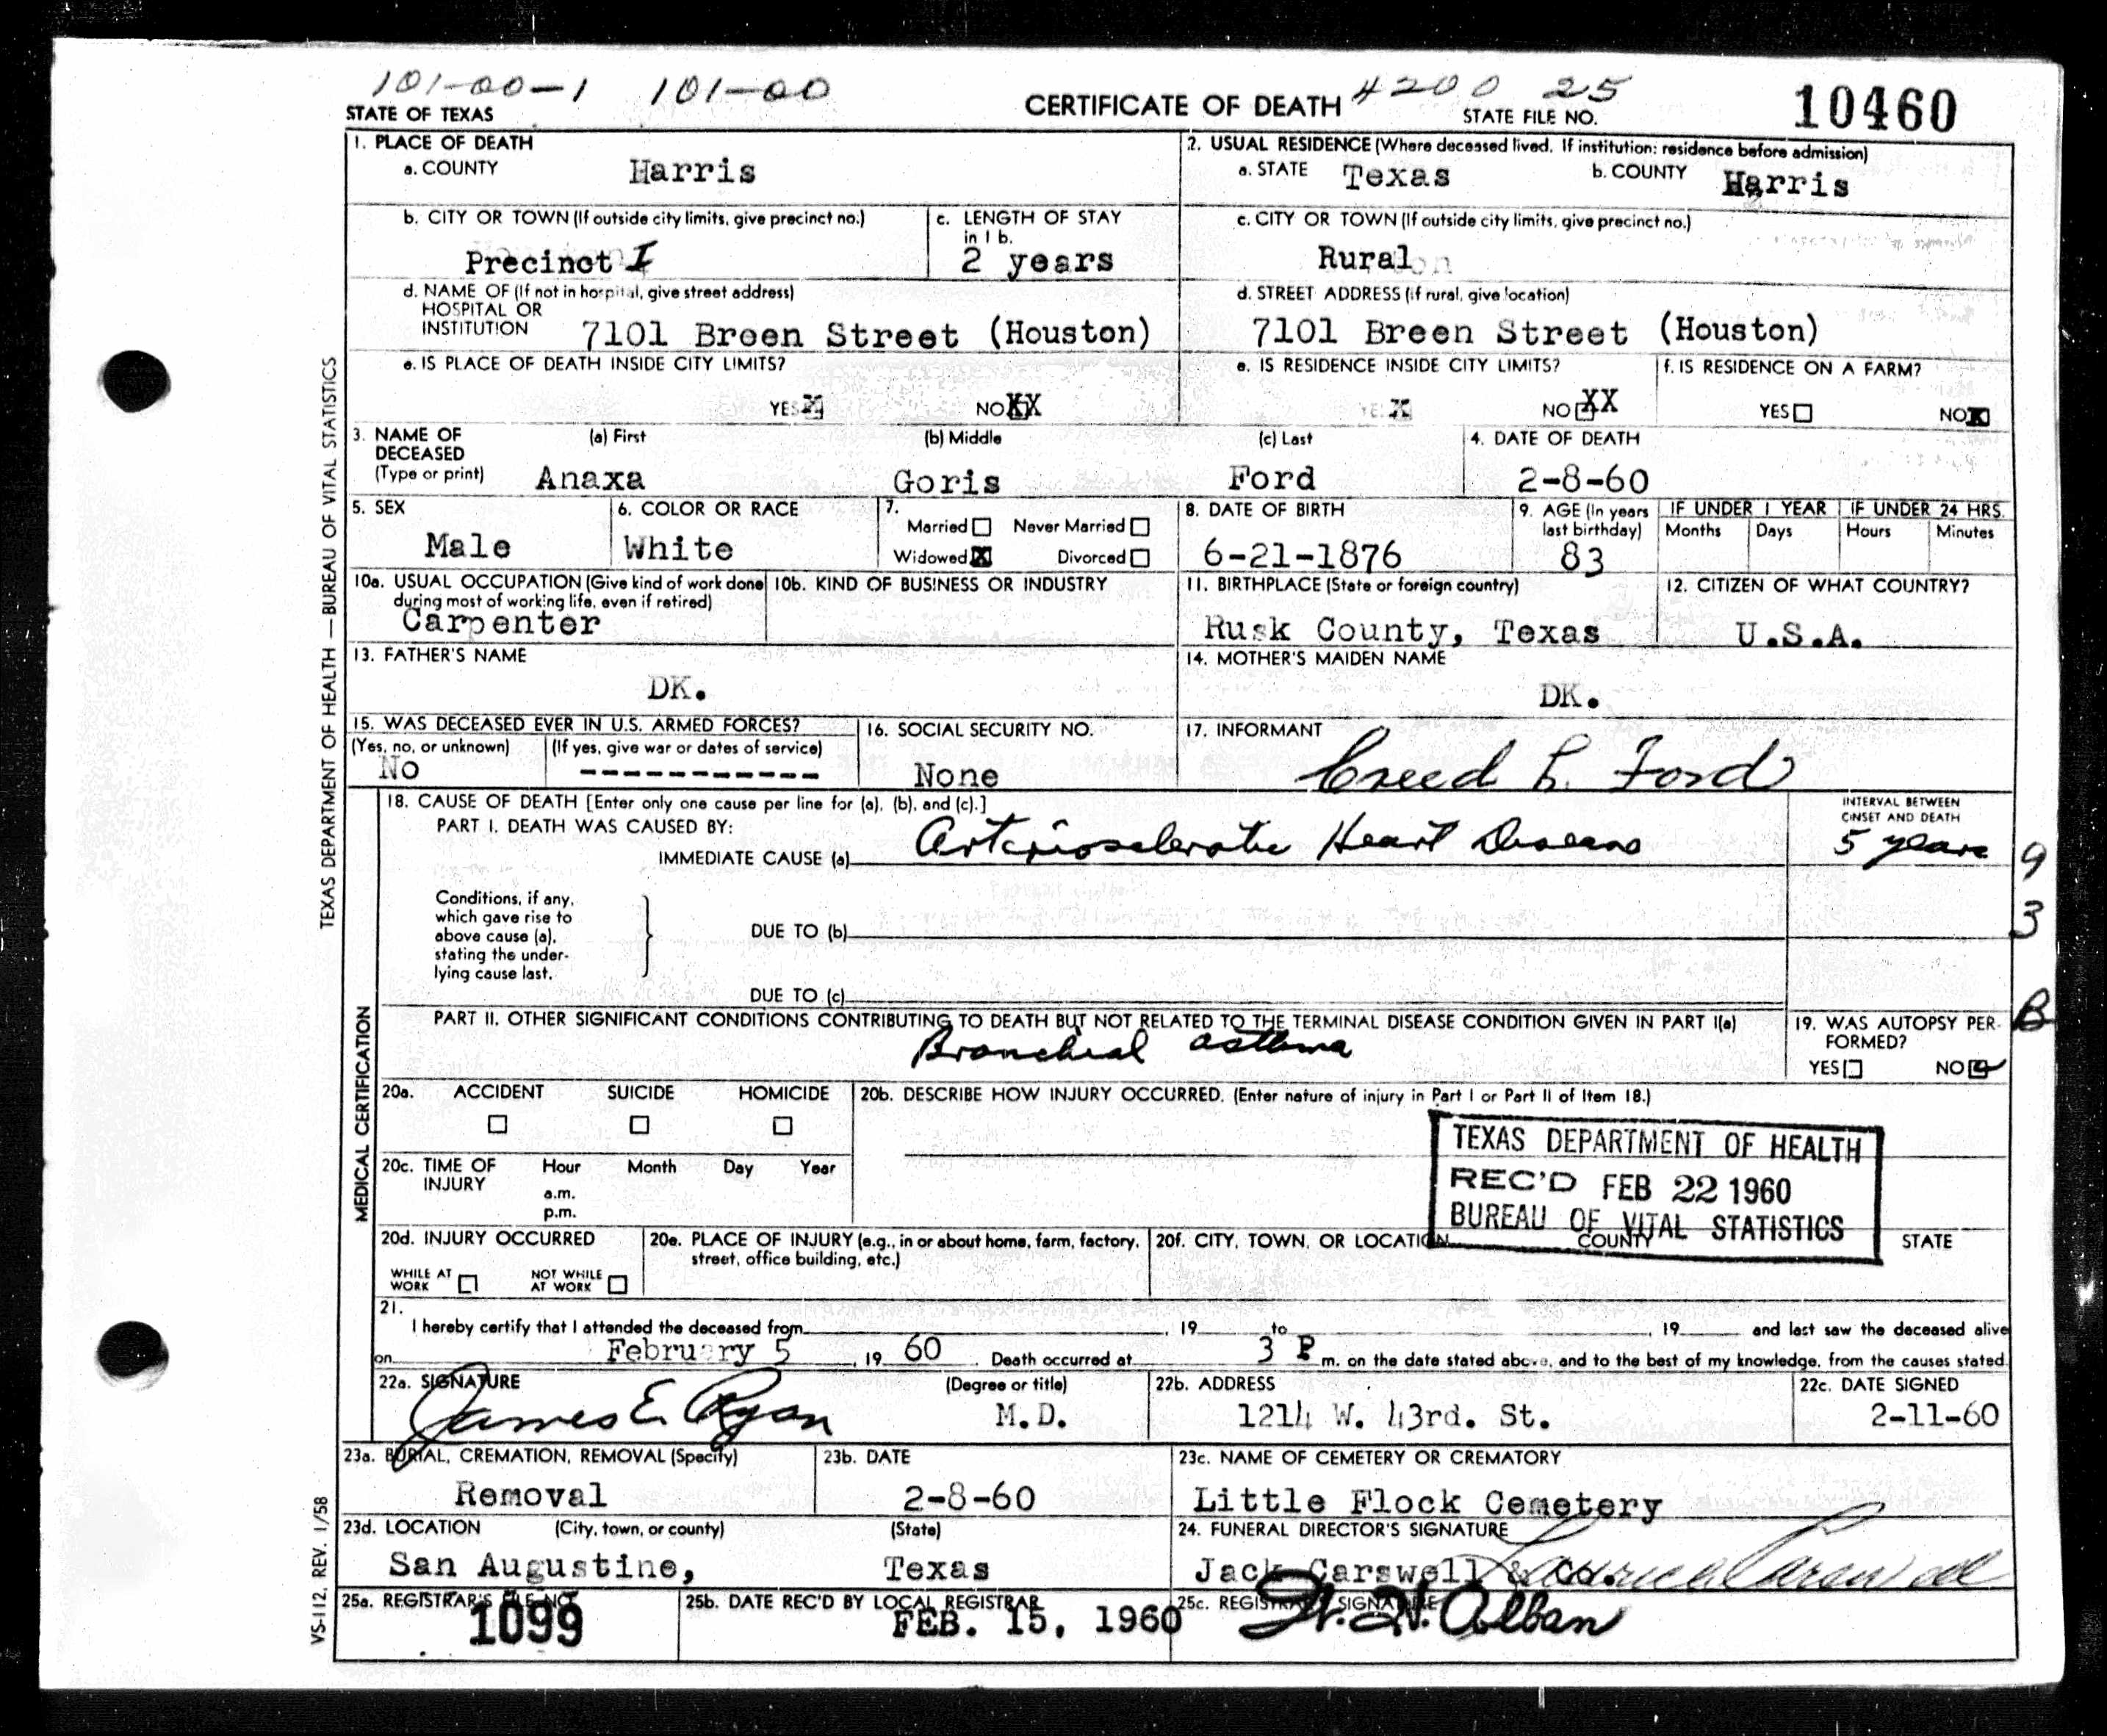 101-00-1 101-00 4200 25
STATE OF TEXAS CERTIFICATE OF DEATH STATE FILE NO. 10460
1. PLACE OF DEATH
a. COUNTY Harris
2. USUAL RESIDENCE (Where deceased lived. If institution: residence before admission)
a. STATE Texas b. COUNTY Harris
b. CITY OR TOWN (If outside city limits, give precinct no.)
Precinct I
c. LENGTH OF STAY
in 1 b.
2 years
c. CITY OR TOWN (If outside city limits, give precinct no.)
Rural
d. NAME OF (If not in hospital, give street address)
HOSPITAL OR
INSTITUTION 7101 Breen Street (Houston)
d. STREET ADDRESS (if rural, give location)
7101 Breen Street (Houston)
e. IS PLACE OF DEATH INSIDE CITY LIMITS?
YES X NO XX
e. IS RESIDENCE INSIDE CITY LIMITS?
YES X NO XX
f. IS RESIDENCE ON A FARM?
YES NO X
3. NAME OF
DECEASED
(Type or print)
(a) First (b) Middle (c) Last
Anaxa Goris Ford
4. DATE OF DEATH
2-8-60
5. SEX
Male
6. COLOR OR RACE
White
7.
Married Never Married
Widowed X Divorced
8. DATE OF BIRTH
6-21-1876
9. AGE (In years
last birthday)
83
IF UNDER 1 YEAR
Months Days
IF UNDER 24 HRS.
Hours Minutes
10a. USUAL OCCUPATION (Give kind of work done
during most of working life, even if retired)
Carpenter
10b. KIND OF BUSINESS OR INDUSTRY
11. BIRTHPLACE (State or foreign country)
Rusk County, Texas
12. CITIZEN OF WHAT COUNTRY?
U.S.A.
13. FATHER'S NAME
DK.
14. MOTHER'S MAIDEN NAME
DK.
15. WAS DECEASED EVER IN U.S. ARMED FORCES?
(Yes, no, or unknown) (If yes, give war or dates of service)
No -----------
16. SOCIAL SECURITY NO.
None
17. INFORMANT
Creed L. Ford
18. CAUSE OF DEATH [Enter only one cause per line for (a), (b), and (c).]
PART I. DEATH WAS CAUSED BY:
IMMEDIATE CAUSE (a) Arteriosclerotic Heart Disease
INTERVAL BETWEEN
ONSET AND DEATH
5 years
9
3
Conditions, if any,
which gave rise to
above cause (a),
stating the under-
lying cause last.
DUE TO (b)
DUE TO (c)
PART II. OTHER SIGNIFICANT CONDITIONS CONTRIBUTING TO DEATH BUT NOT RELATED TO THE TERMINAL DISEASE CONDITION GIVEN IN PART I(a)
Bronchial asthma
19. WAS AUTOPSY PER-
FORMED?
YES NO
B
20a. ACCIDENT SUICIDE HOMICIDE
20b. DESCRIBE HOW INJURY OCCURRED. (Enter nature of injury in Part I or Part II of Item 18.)
TEXAS DEPARTMENT OF HEALTH
REC'D FEB 22 1960
BUREAU OF VITAL STATISTICS
20c. TIME OF
INJURY
Hour Month Day Year
a.m.
p.m.
20d. INJURY OCCURRED
WHILE AT
WORK
NOT WHILE
AT WORK
20e. PLACE OF INJURY (e.g., in or about home, farm, factory,
street, office building, etc.)
20f. CITY, TOWN, OR LOCATION COUNTY STATE
21.
I hereby certify that I attended the deceased from , 19 to , 19 and last saw the deceased alive
on February 5 , 19 60 . Death occurred at 3 P m. on the date stated above, and to the best of my knowledge, from the causes stated.
22a. SIGNATURE (Degree or title)
James E. Ryan M.D.
22b. ADDRESS
1214 W. 43rd. St.
22c. DATE SIGNED
2-11-60
23a. BURIAL, CREMATION, REMOVAL (Specify)
Removal
23b. DATE
2-8-60
23c. NAME OF CEMETERY OR CREMATORY
Little Flock Cemetery
23d. LOCATION (City, town, or county) (State)
San Augustine, Texas
24. FUNERAL DIRECTOR'S SIGNATURE
Jack Carswell & Co. Carswell
25a. REGISTRAR'S FILE NO.
1099
25b. DATE REC'D BY LOCAL REGISTRAR
FEB. 15, 1960
25c. REGISTRAR'S SIGNATURE
W. Alban
TEXAS DEPARTMENT OF HEALTH — BUREAU OF VITAL STATISTICS
MEDICAL CERTIFICATION
VS-112. REV. 1/58